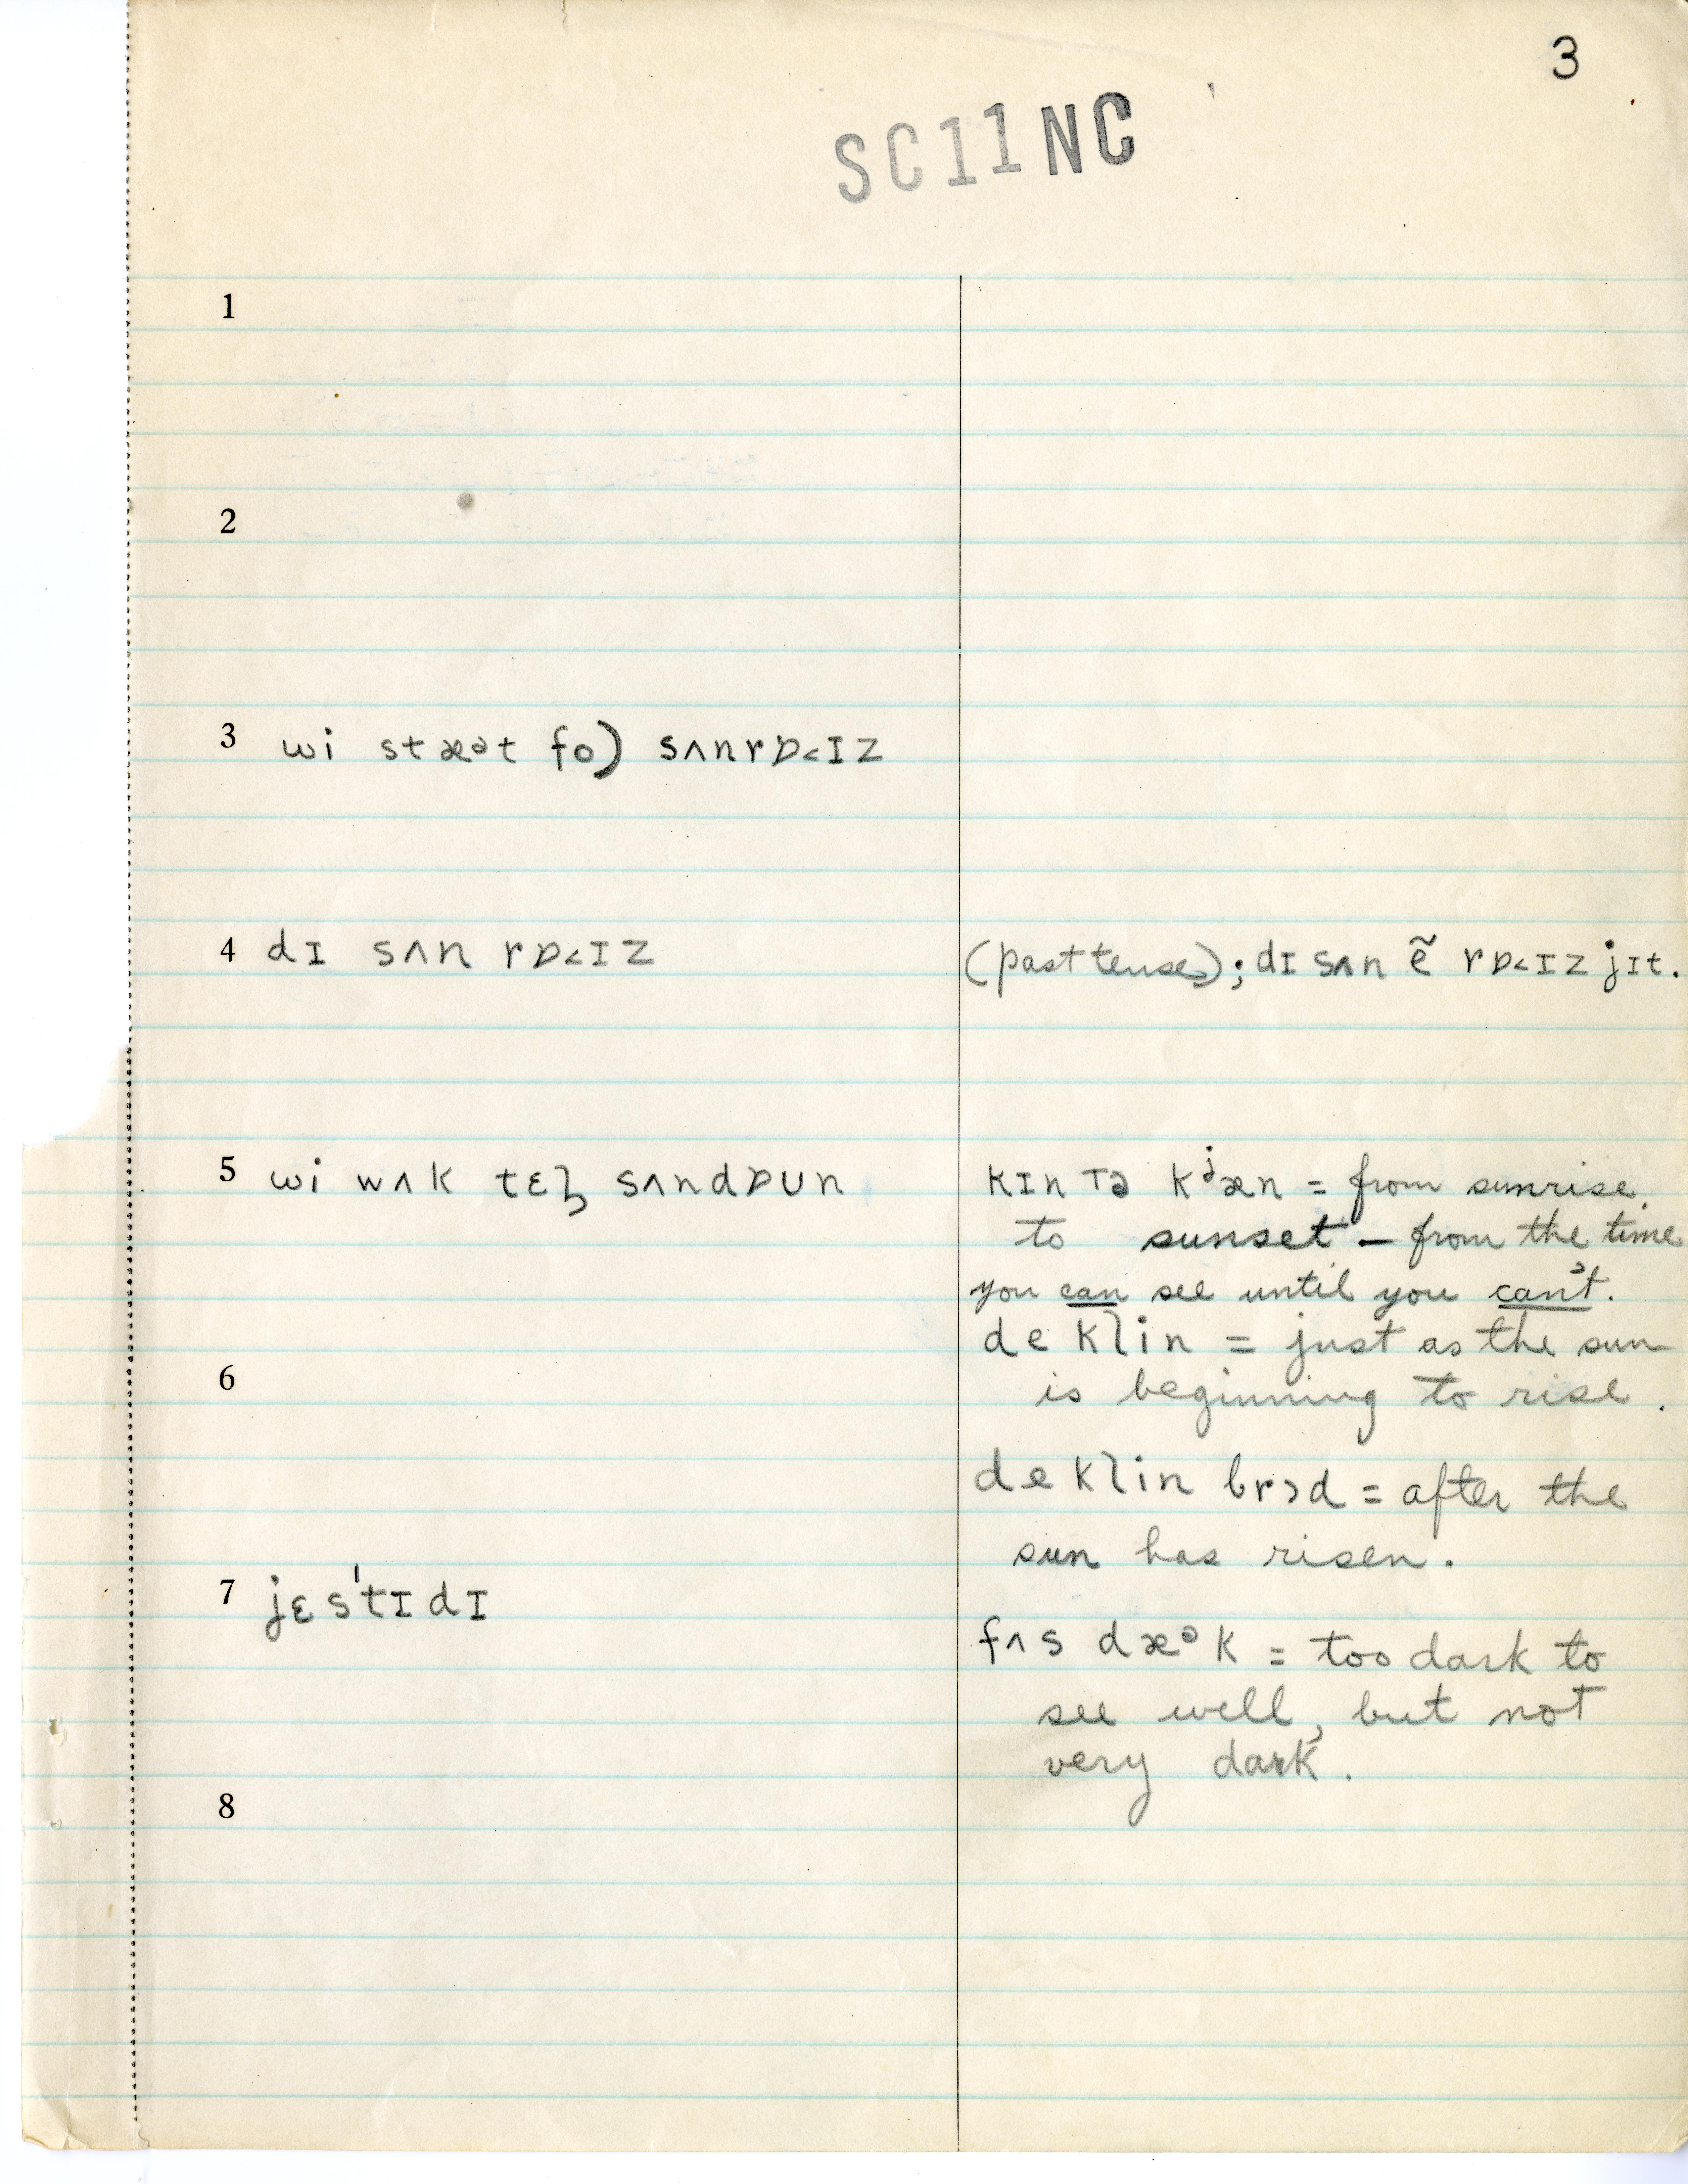 3
SC11NC
1
2
3 wi stæət fo) sʌnrɒ˂ɪz
4 dɪ sʌn rɒ˂ɪz (past tense); dɪ sʌn ẽ rɒ˂ɪz jɪt.
5 wi wʌk tɛl̥ sʌndɒʊn kɪn tə kʲæn = from sunrise
to sunset – from the time
you can see until you can't.
de klin = just as the sun
6 is beginning to rise.
de klin brɔd = after the
sun has risen.
7 jɛs'tɪdɪ
fʌs dæək = too dark to
see well, but not
very dark.
8